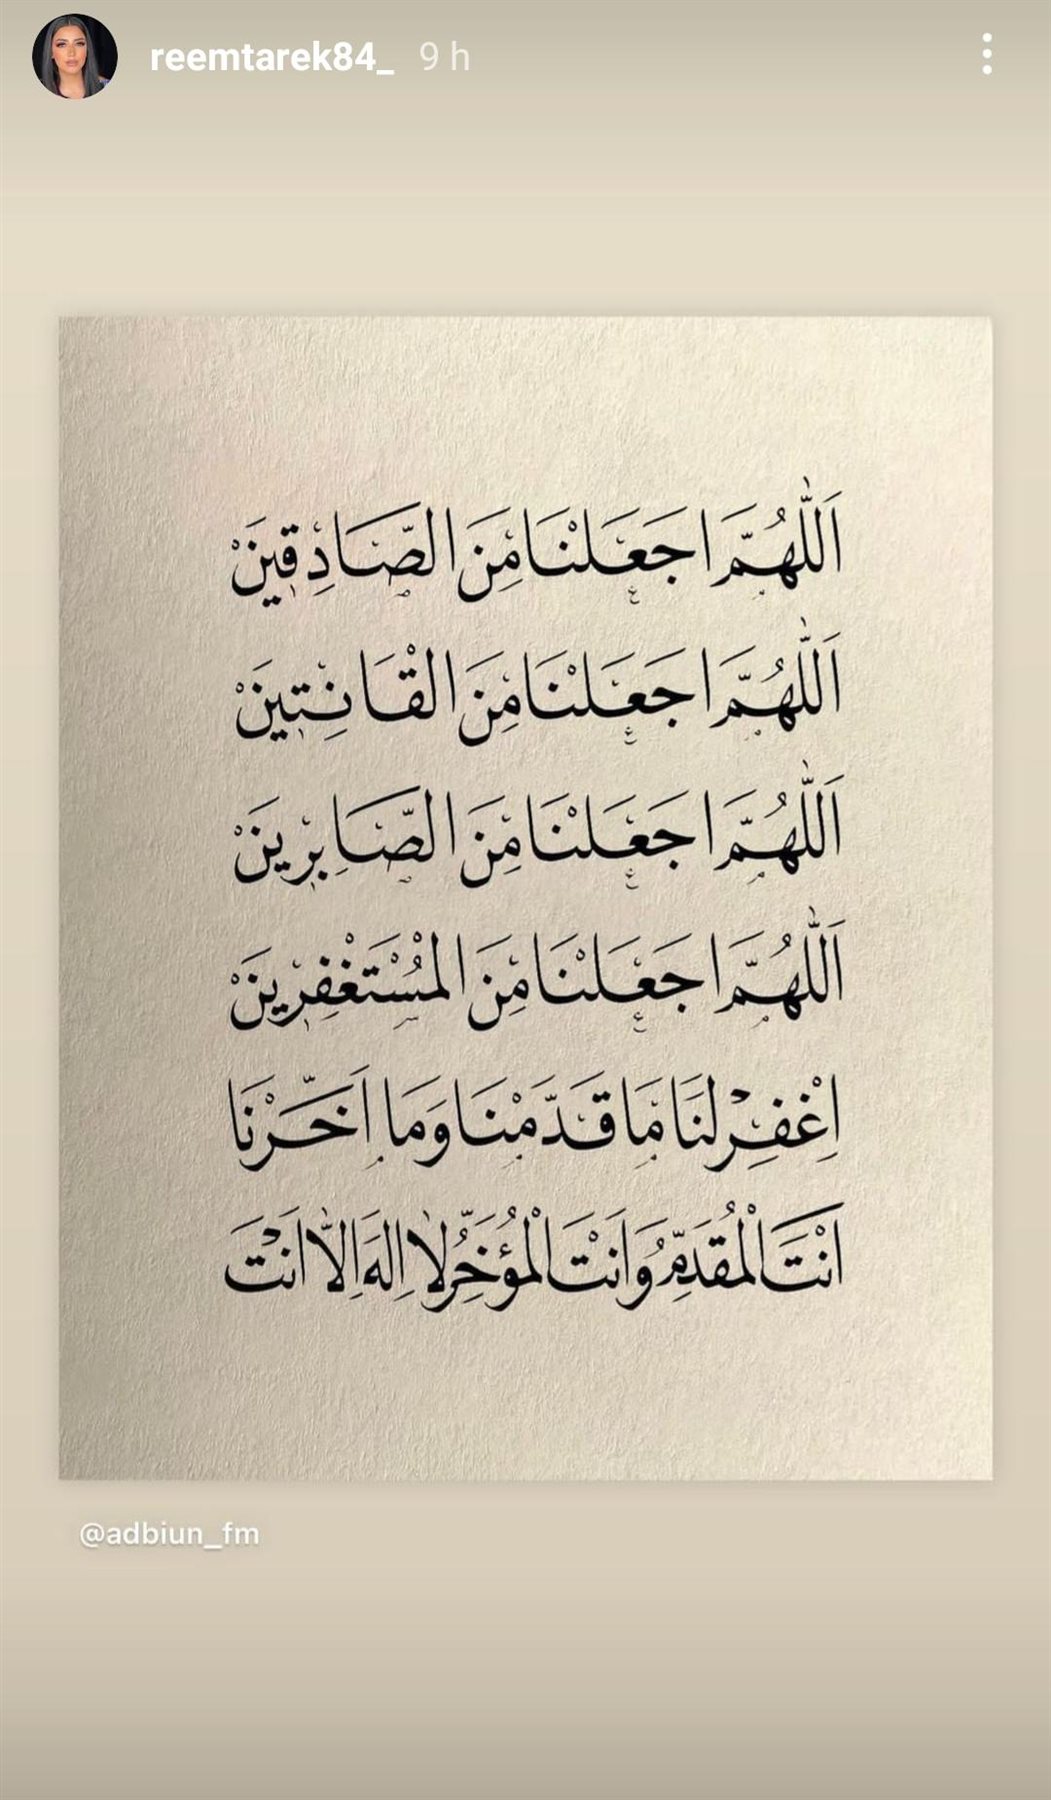 reemtarek84_ 9 h
اَللّٰهُمَّ اجَعَلْنَا مِنَ الصَّادِقِينَ
اَللّٰهُمَّ اجَعَلْنَا مِنَ الْقَانِتِينَ
اَللّٰهُمَّ اجَعَلْنَا مِنَ الصَّابِرِينَ
اَللّٰهُمَّ اجَعَلْنَا مِنَ الْمُسْتَغْفِرِينَ
اِغْفِرْ لَنَا مَا قَدَّمْنَا وَمَا اَخَّرْنَا
اَنْتَ الْمُقَدِّمُ وَاَنْتَ الْمُؤَخِّرُ لَا اِلٰهَ اِلَّا اَنْتَ
@adbiun_fm